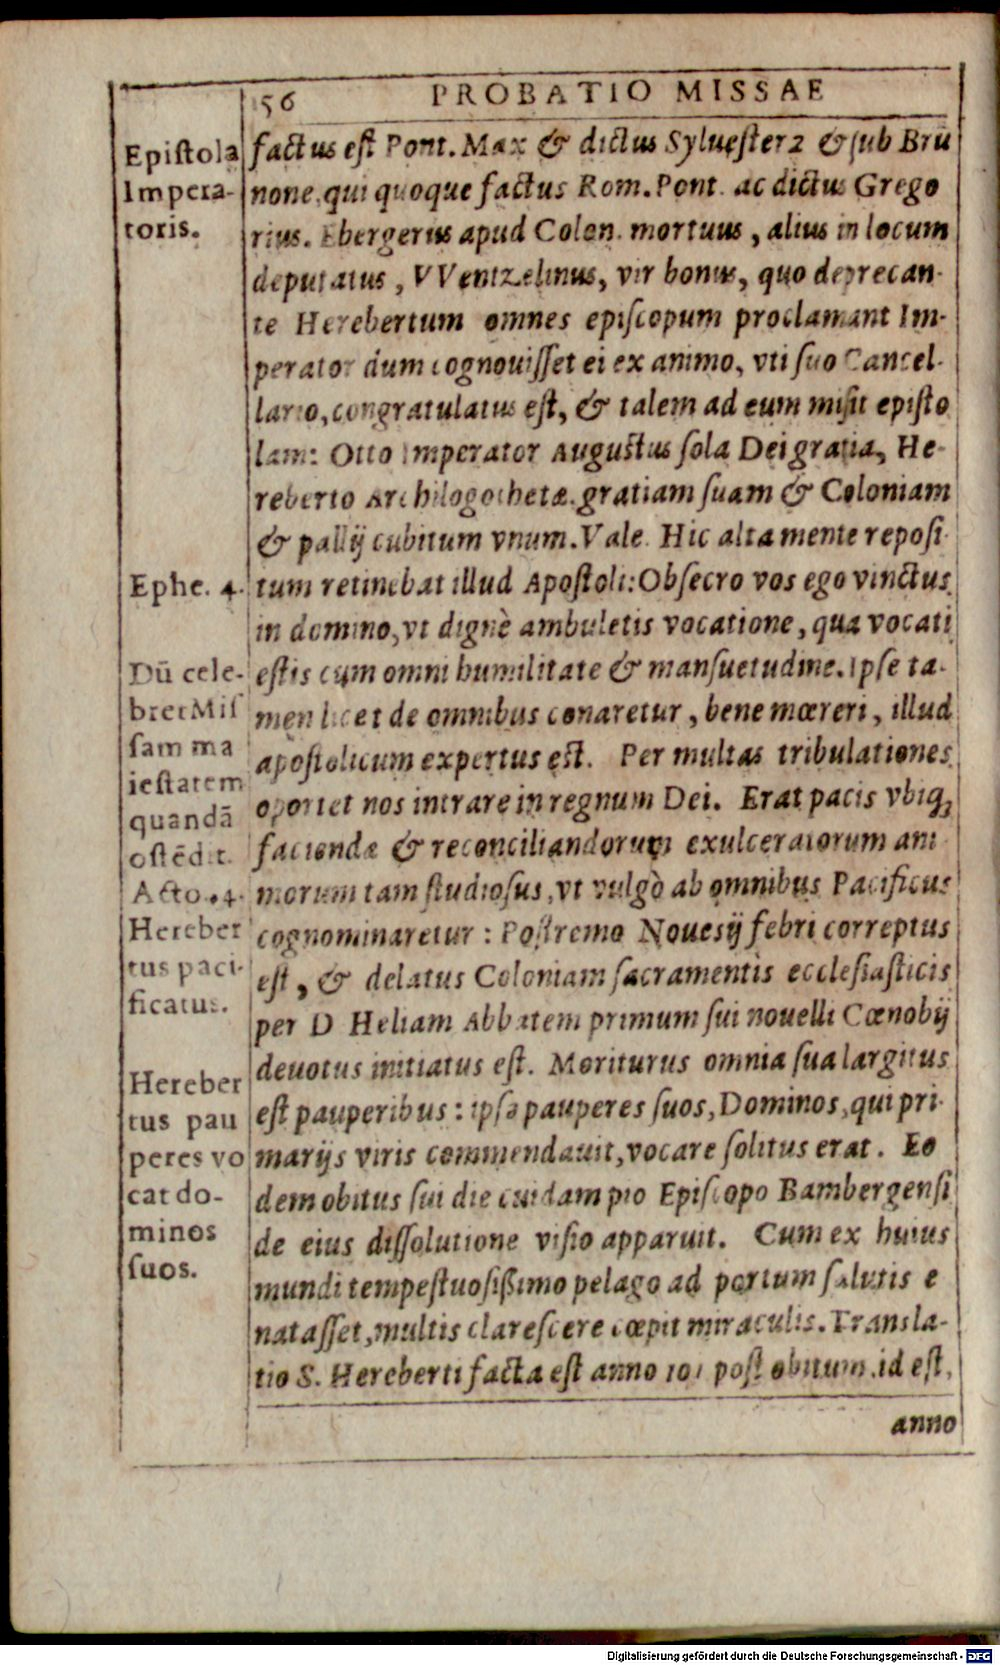 156 PROBATIO MISSAE
Epistola
Impera-
toris.
factus est Pont. Max & dictus Syluester 2 & sub Brū
none, qui quoque factus Rom. Pont. ac dictus Grego
rius. Ebergerus apud Colon. mortuus, alius in locum
deputatus, VVentzelinus, vir bonus, quo deprecan-
te Herebertum omnes episcopum proclamant Im-
perator dum cognouisset ei ex animo, vti suo Cancel-
lario, congratulatus est, & talem ad eum misit episto
lam: Otto Imperator Augustus sola Dei gratia, He-
reberto Archilogothetæ. gratiam suam & Coloniam
& pallij cubitum vnum. Vale. Hic alta mente reposi-
Ephe. 4.
tum retinebat illud Apostoli: Obsecro vos ego vinctus
in domino, vt dignè ambuletis vocatione, qua vocati
Dū cele-
bret Mis
sam ma
iestatem
quandā
ostēdit.
Acto. 4.
estis cum omni humilitate & mansuetudine. Ipse ta-
men licet de omnibus conaretur, bene mœreri, illud
apostolicum expertus est. Per multas tribulationes
oportet nos intrare in regnum Dei. Erat pacis vbiq;
faciendæ & reconciliandorum exulceratorum ani
morum tam studiosus, vt vulgò ab omnibus Pacificus
Hereber
tus paci-
ficatus.
cognominaretur: Postremo Nouesij febri correptus
est, & delatus Coloniam sacramentis ecclesiasticis
per D Heliam Abbatem primum sui nouelli Cœnobij
Hereber
tus pau
peres vo
cat do-
minos
suos.
deuotus initiatus est. Moriturus omnia sua largitus
est pauperibus: ipse pauperes suos, Dominos, qui pri-
marijs viris commendauit, vocare solitus erat. Eo
dem obitus sui die cuidam pio Episcopo Bambergensi
de eius dissolutione visio apparuit. Cum ex huius
mundi tempestuosißimo pelago ad portum salutis e
natasset, multis clarescere cœpit miraculis. Transla-
tio S. Hereberti facta est anno 101 post obitum. id est,
anno
Digitalisierung gefördert durch die Deutsche Forschungsgemeinschaft - DFG